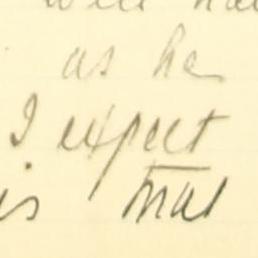 well ha
as he
I expect
is